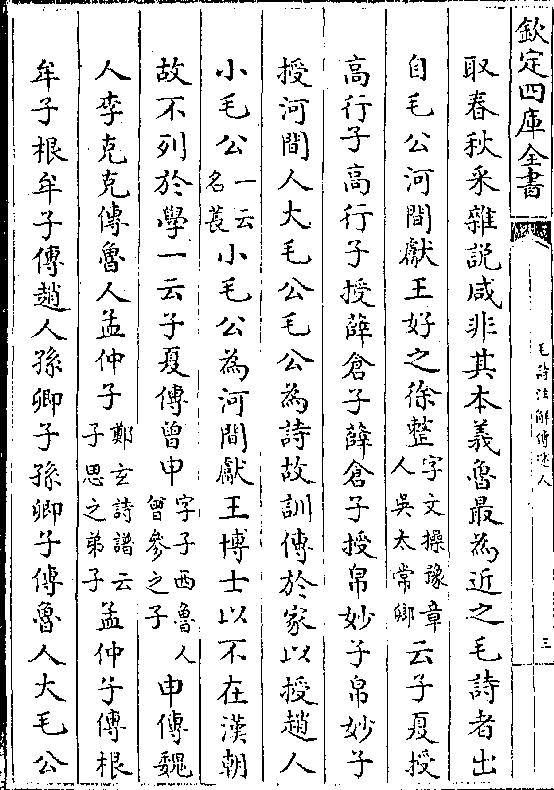 欽定四庫全書
毛詩注解傳述人
三
取春秋采雜説咸非其本義魯最為近之毛詩者出
自毛公河間獻王好之徐整字文操豫章人吳太常卿云子夏授
高行子高行子授薛倉子薛倉子授帛妙子帛妙子
授河間人大毛公毛公為詩故訓傳於家以授趙人
小毛公一云名萇小毛公為河間獻王博士以不在漢朝
故不列於學一云子夏傳曾申字子西魯人曾參之子申傳魏
人李克克傳魯人孟仲子鄭玄詩譜云子思之弟子孟仲子傳根
牟子根牟子傳趙人孫卿子孫卿子傳魯人大毛公